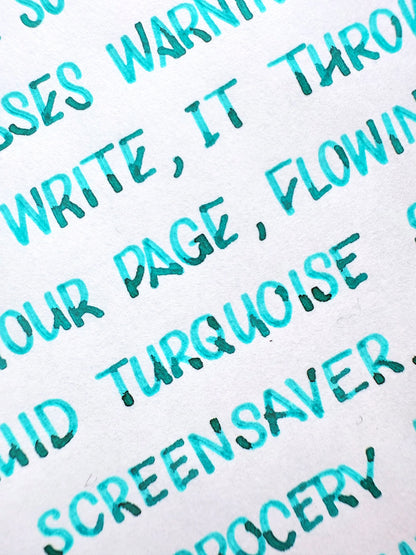 WARNIN
WRITE, IT THRO
YOUR PAGE, FLOWIN
TURQUOISE
SCREENSAVER.
GROCERY